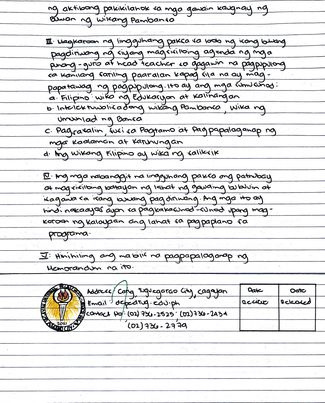 ng aktibong pakikilahok sa mga gawain kaugnay ng
Buwan ng Wikang Pambansa
III. Magkaroon ng lingguhang paksa sa loob ng isang buwang
pagdiriwang na siyang magsisilbing agenda ng mga
punong-guro at head teacher sa gagawin na pagpupulong
sa kanilang sariling paaralan kapag sila na ay mag-
papatawag ng pagpupulong. Ito ay ang mga sumusunod:
a. Filipino wika ng Edukasyon at Kalinangan
b. Intelektuwalisadong Wikang Pambansa, Wika ng
Umuunlad na Bansa
c. Pagsasalin, susi sa Pagtamo at Pagpapalaganap ng
mga kaalaman at karunungan
d. Ang Wikang Filipino ay wika ng saliksik
IV. Ang mga nabanggit na lingguhang paksa ang patnubay
at magsisilbing batayan ng lahat ng gawaing bubuuin at
isagawa sa isang buwang pagdiriwang. Ang mga ito ay
hindi nakaayos ayon sa pagkakasunod-sunod upang mag-
karoon ng kalayaan ang lahat sa pagpaplano sa
programa.
V. Hinihiling ang mabilis na pagpapalaganap ng
Memorandum na ito.
Address: Carig, Tuguegarao City, Cagayan
Email: deped@tug.edu.ph
Contact No: (02) 736-2525; (02) 736-2434
(02) 736-2979
Date Date
Received Released